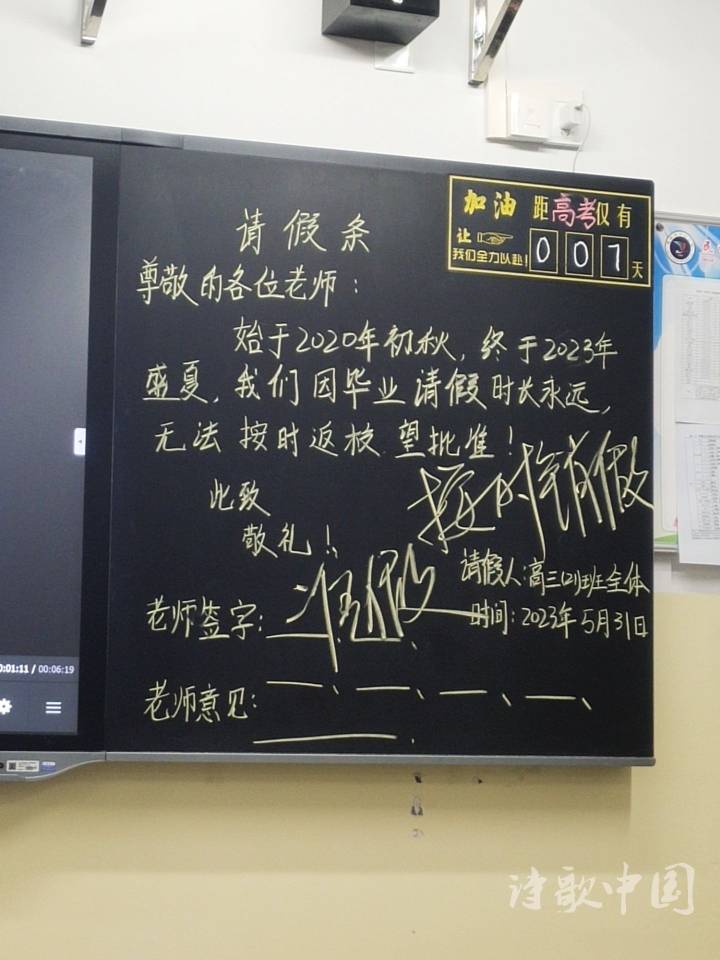 加油 距高考仅有
让
我们全力以赴! 007天
请假条
尊敬的各位老师:
始于2020年初秋,终于2023年
盛夏,我们因毕业请假时长永远,
无法按时返校望批准!
按时销假
此致
敬礼!
请假人:高三(2)班全体
时间:2023年5月31日
老师签字: 准假
老师意见:
00:01:11 / 00:06:19
诗歌中国